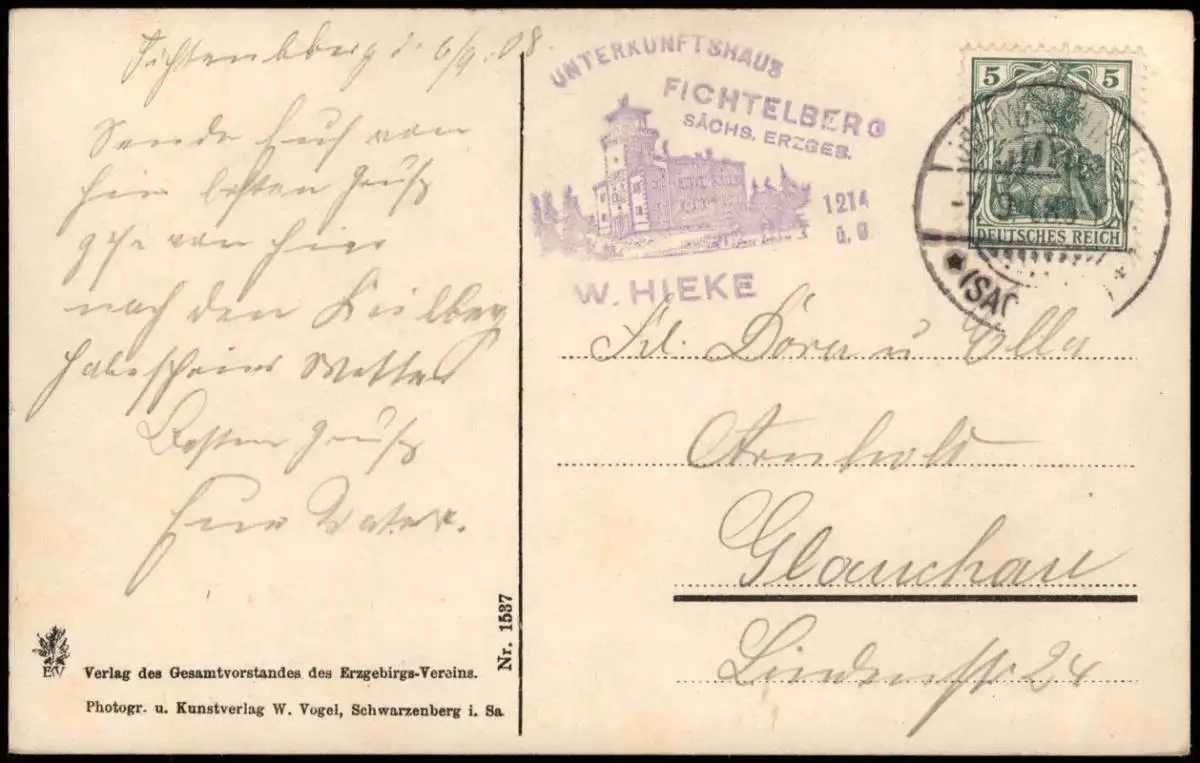 Fichtelberg d. 6/9. 08.
Sende Euch von
hier besten Gruß
gehe von hier
nach den Keilberg
habe schönes Wetter
Besten Gruß
Euer Vater.
EV
Verlag des Gesamtvorstandes des Erzgebirgs-Vereins.
Photogr. u. Kunstverlag W. Vogel, Schwarzenberg i. Sa.
Nr. 1537
UNTERKUNFTSHAUS
FICHTELBERG
SÄCHS. ERZGEB.
1214
W. HIEKE
5 5
DEUTSCHES REICH
Frl. Dora u Ella
Arnholdt
Glauchau
Lindenstr 24